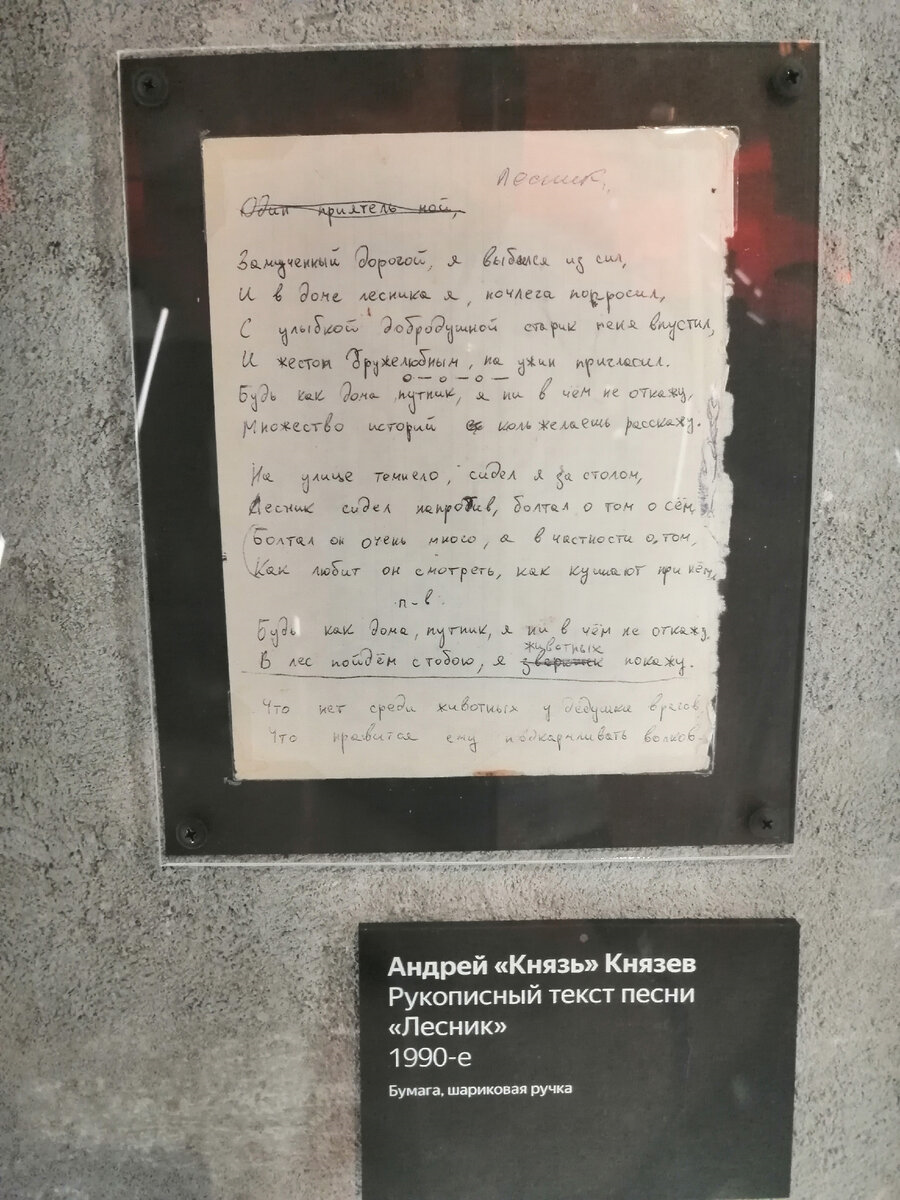 Лесник.
Один приятель мой,
Замученный дорогой, я выбился из сил,
И в доме лесника я, ночлега попросил,
С улыбкой добродушной старик меня впустил,
И жестом дружелюбным, на ужин пригласил.
Будь как дома, путник, я ни в чём не откажу,
Множество историй коль желаешь расскажу.
На улице темнело, сидел я за столом,
Лесник сидел напротив, болтал о том о сём
Болтал он очень много, а в частности о том,
Как любит он смотреть, как кушают при нём.
п-в.
Будь как дома, путник, я ни в чём не откажу,
животных
В лес пойдём с тобою, я зверюшек покажу.
Что нет среди животных у дедушки врагов
Что нравится ему подкармливать волков.
Андрей «Князь» Князев
Рукописный текст песни
«Лесник»
1990-е
Бумага, шариковая ручка